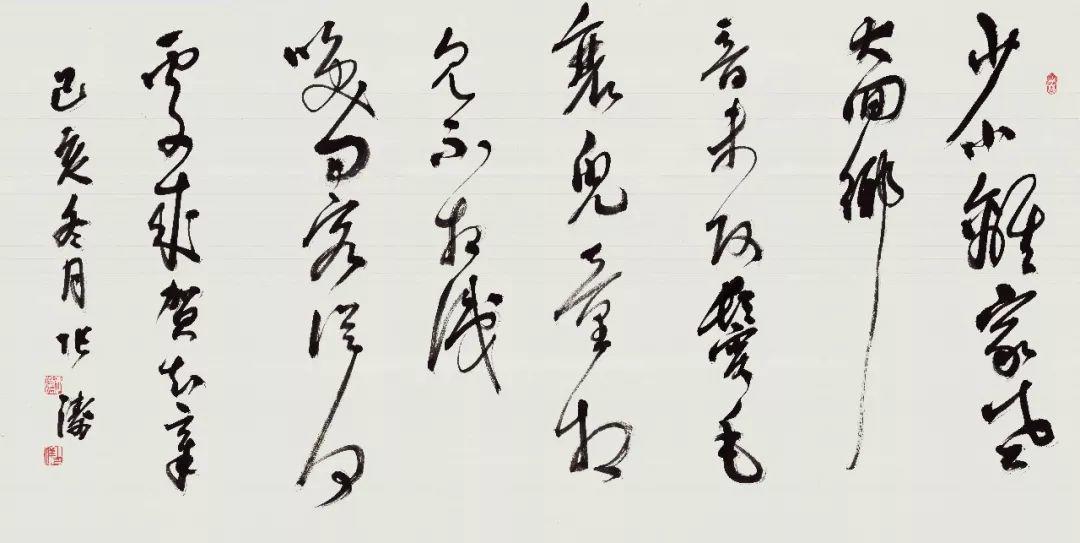 少小離家老
大回鄉
音未改鬢毛
衰兒童相
見不相識
咲問客從何
處來賀知章
己亥冬月張濤